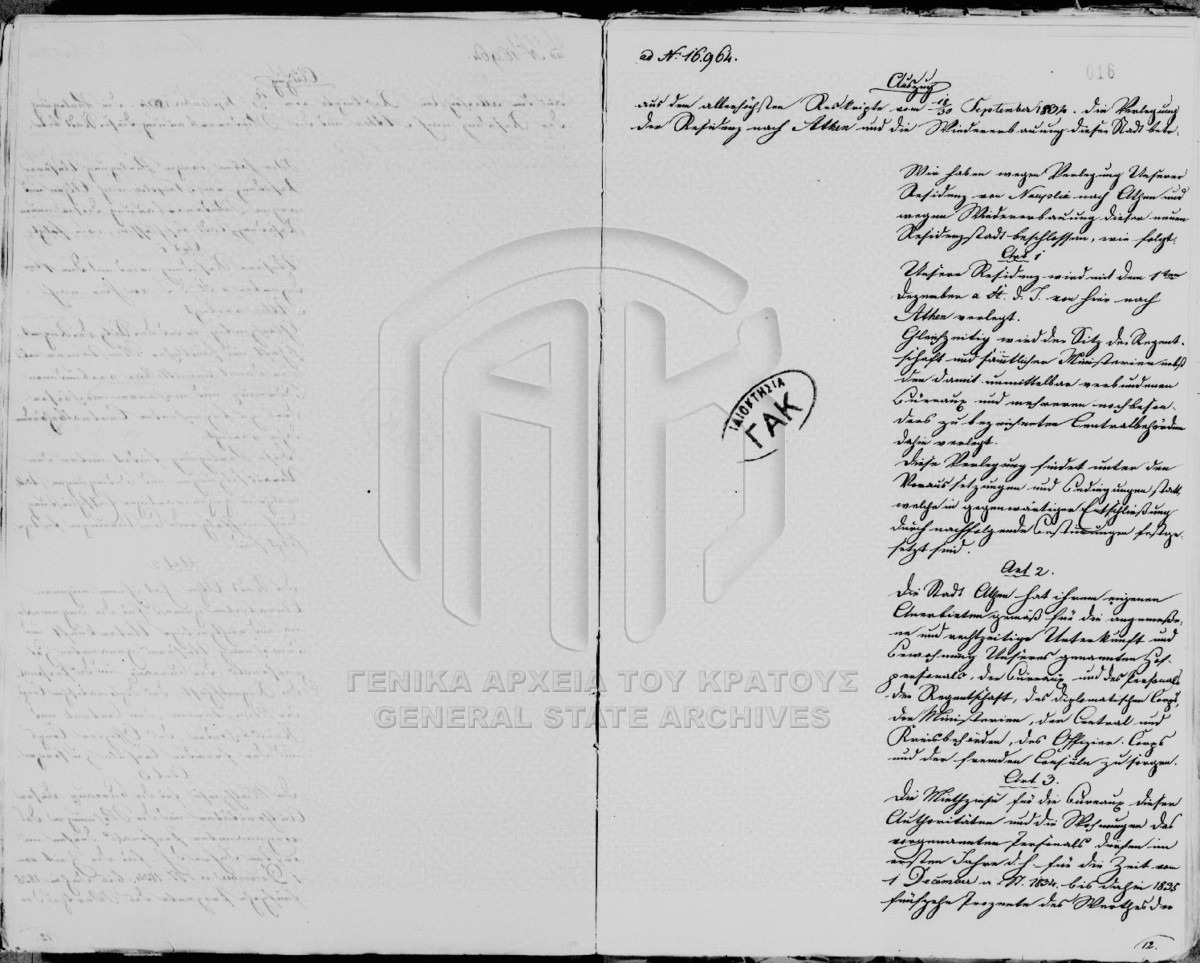 ad N: 16.964.
016
Auszug
aus dem allerhöchsten Reskripte vom 18/30 September 1834. die Verlegung
der Residenz nach Athen und die Wiedererbauung dieser Stadt betr.
Wir haben wegen Verlegung Unserer
Residenz von Nauplia nach Athen und
wegen Wiedererbauung dieser neuen
Residenzstadt beschlossen, wie folgt:
Art 1
Unsere Residenz wird mit dem 1ten
Dezember a. St. d. J. von hier nach
Athen verlegt.
Gleichzeitig wird der Sitz der Regent-
schaft und sämtlicher Ministerien nebst
den damit unmittelbar verbundenen
Büreaux und mehreren noch beson-
ders zu bezeichneten Centralbehörden
dahin verlegt.
Diese Verlegung findet unter den
Voraussetzungen und Bedingungen statt,
welche in gegenwärtiger Entschließung
durch nachfolgende Bestimmungen festge-
setzt sind.
Art 2.
Die Stadt Athen hat ihrem eigenen
Anerbieten gemäß für die angemesse-
ne und rechtzeitige Unterkunft und
Bewohnung Unseres genannten Hof-
personals, der Büreaux und des Personals
der Regentschaft, des diplomatischen Corps,
der Ministerien, der Central und
Kreisbehörden, des Offizier-Corps
und der fremden Consuln zu sorgen.
Art 3.
Die Miethzinse für die Büreaux dieser
Authoritäten und die Wohnungen des
vorgenannten Personals dürfen im
ersten Jahre d. h. für die Zeit vom
1 Dezember a. St. 1834. bis dahin 1835
fünfzehn Prozente des Werthes der
12.
ΙΔΙΟΚΤΗΣΙΑ
ΓΑΚ
ΓΕΝΙΚΑ ΑΡΧΕΙΑ ΤΟΥ ΚΡΑΤΟΥΣ
GENERAL STATE ARCHIVES